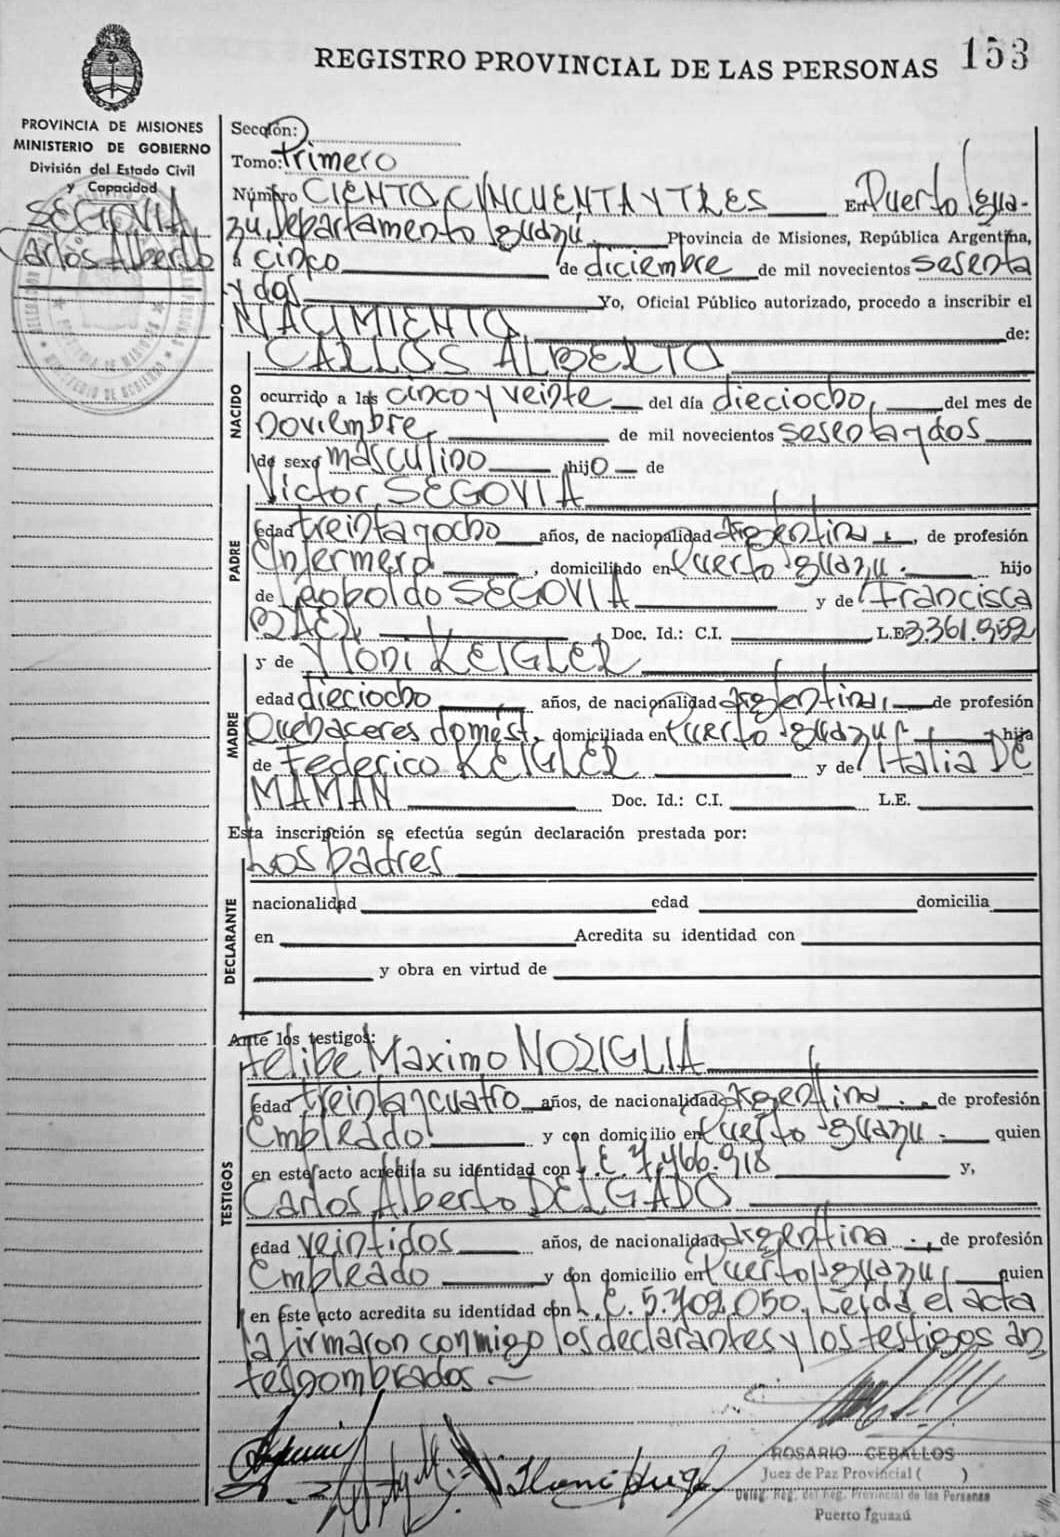 REGISTRO PROVINCIAL DE LAS PERSONAS 153
PROVINCIA DE MISIONES
MINISTERIO DE GOBIERNO
División del Estado Civil
y Capacidad
SEGOVIA
Carlos Alberto
Sección:
Tomo: Primero
Número CIENTO CINCUENTA Y TRES En Puerto Igua-
zu Departamento Iguazú Provincia de Misiones, República Argentina,
a cinco de diciembre de mil novecientos sesenta
y dos Yo, Oficial Público autorizado, procedo a inscribir el
NACIMIENTO de:
NACIDO
CARLOS ALBERTO
ocurrido a las cinco y veinte del día dieciocho, del mes de
noviembre, de mil novecientos sesenta y dos
de sexo masculino hijo de
PADRE
Victor SEGOVIA
edad treinta y ocho años, de nacionalidad Argentina, de profesión
Enfermero, domiciliado en Puerto Iguazu. hijo
de Leopoldo SEGOVIA y de Francisca
BAEZ Doc. Id.: C.I. L.E. 3.361.952
MADRE
y de KEIGLER
edad dieciocho años, de nacionalidad Argentina, de profesión
Quehaceres domést. domiciliada en Puerto Iguazu hija
de Federico KEIGLER y de Italia DE
MAMAN Doc. Id.: C.I. L.E.
Esta inscripción se efectúa según declaración prestada por:
DECLARANTE
Los padres
nacionalidad edad domicilia
en Acredita su identidad con
y obra en virtud de
Ante los testigos:
TESTIGOS
Felipe Maximo NOZIGLIA
edad treinta y cuatro años, de nacionalidad Argentina. de profesión
Empleado y con domicilio en Puerto Iguazu. quien
en este acto acredita su identidad con L.E. 7.466.918 y,
Carlos Alberto DELGADO
edad veintidos años, de nacionalidad Argentina., de profesión
Empleado y con domicilio en Puerto Iguazu, quien
en este acto acredita su identidad con L.E. 5.709.050. Leída el acta
la firmaron conmigo los declarantes y los testigos an
tes nombrados
ROSARIO CEBALLOS
Juez de Paz Provincial ( )
Deleg. Reg. del Reg. Provincial de las Personas
Puerto Iguazú